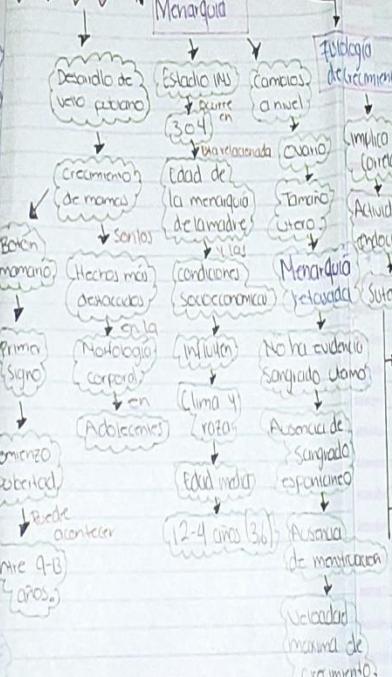 Menarquia
Desarrollo de
vello pubiano
Crecimiento
de mamas
Boton
mamario
Primer
Signo
omienzo
pubertad
Puede
acontecer
ntre 9-13
años.
son los
Hechos más
destacados
en la
Morfologia
corporal
en
Adolecentes
Estadio
ocurre
en
3 o 4
Esta relacionada
Edad de
la menarquia
de la madre
y las
condiciones
socioeconomicas
influyen
Clima y
raza
Edad media
12-4 años (3,6)
Cambios
a nivel
Ovario
Tamaño
Utero
Menarquia
retrasada
No ha evidencia
Sangrado
Ausencia de
sangrado
espontaneo
Ausencia
de menstruacion
Velocidad
maxima de
crecimiento.
Fisiología
de crecimien
implica
corre
Activid